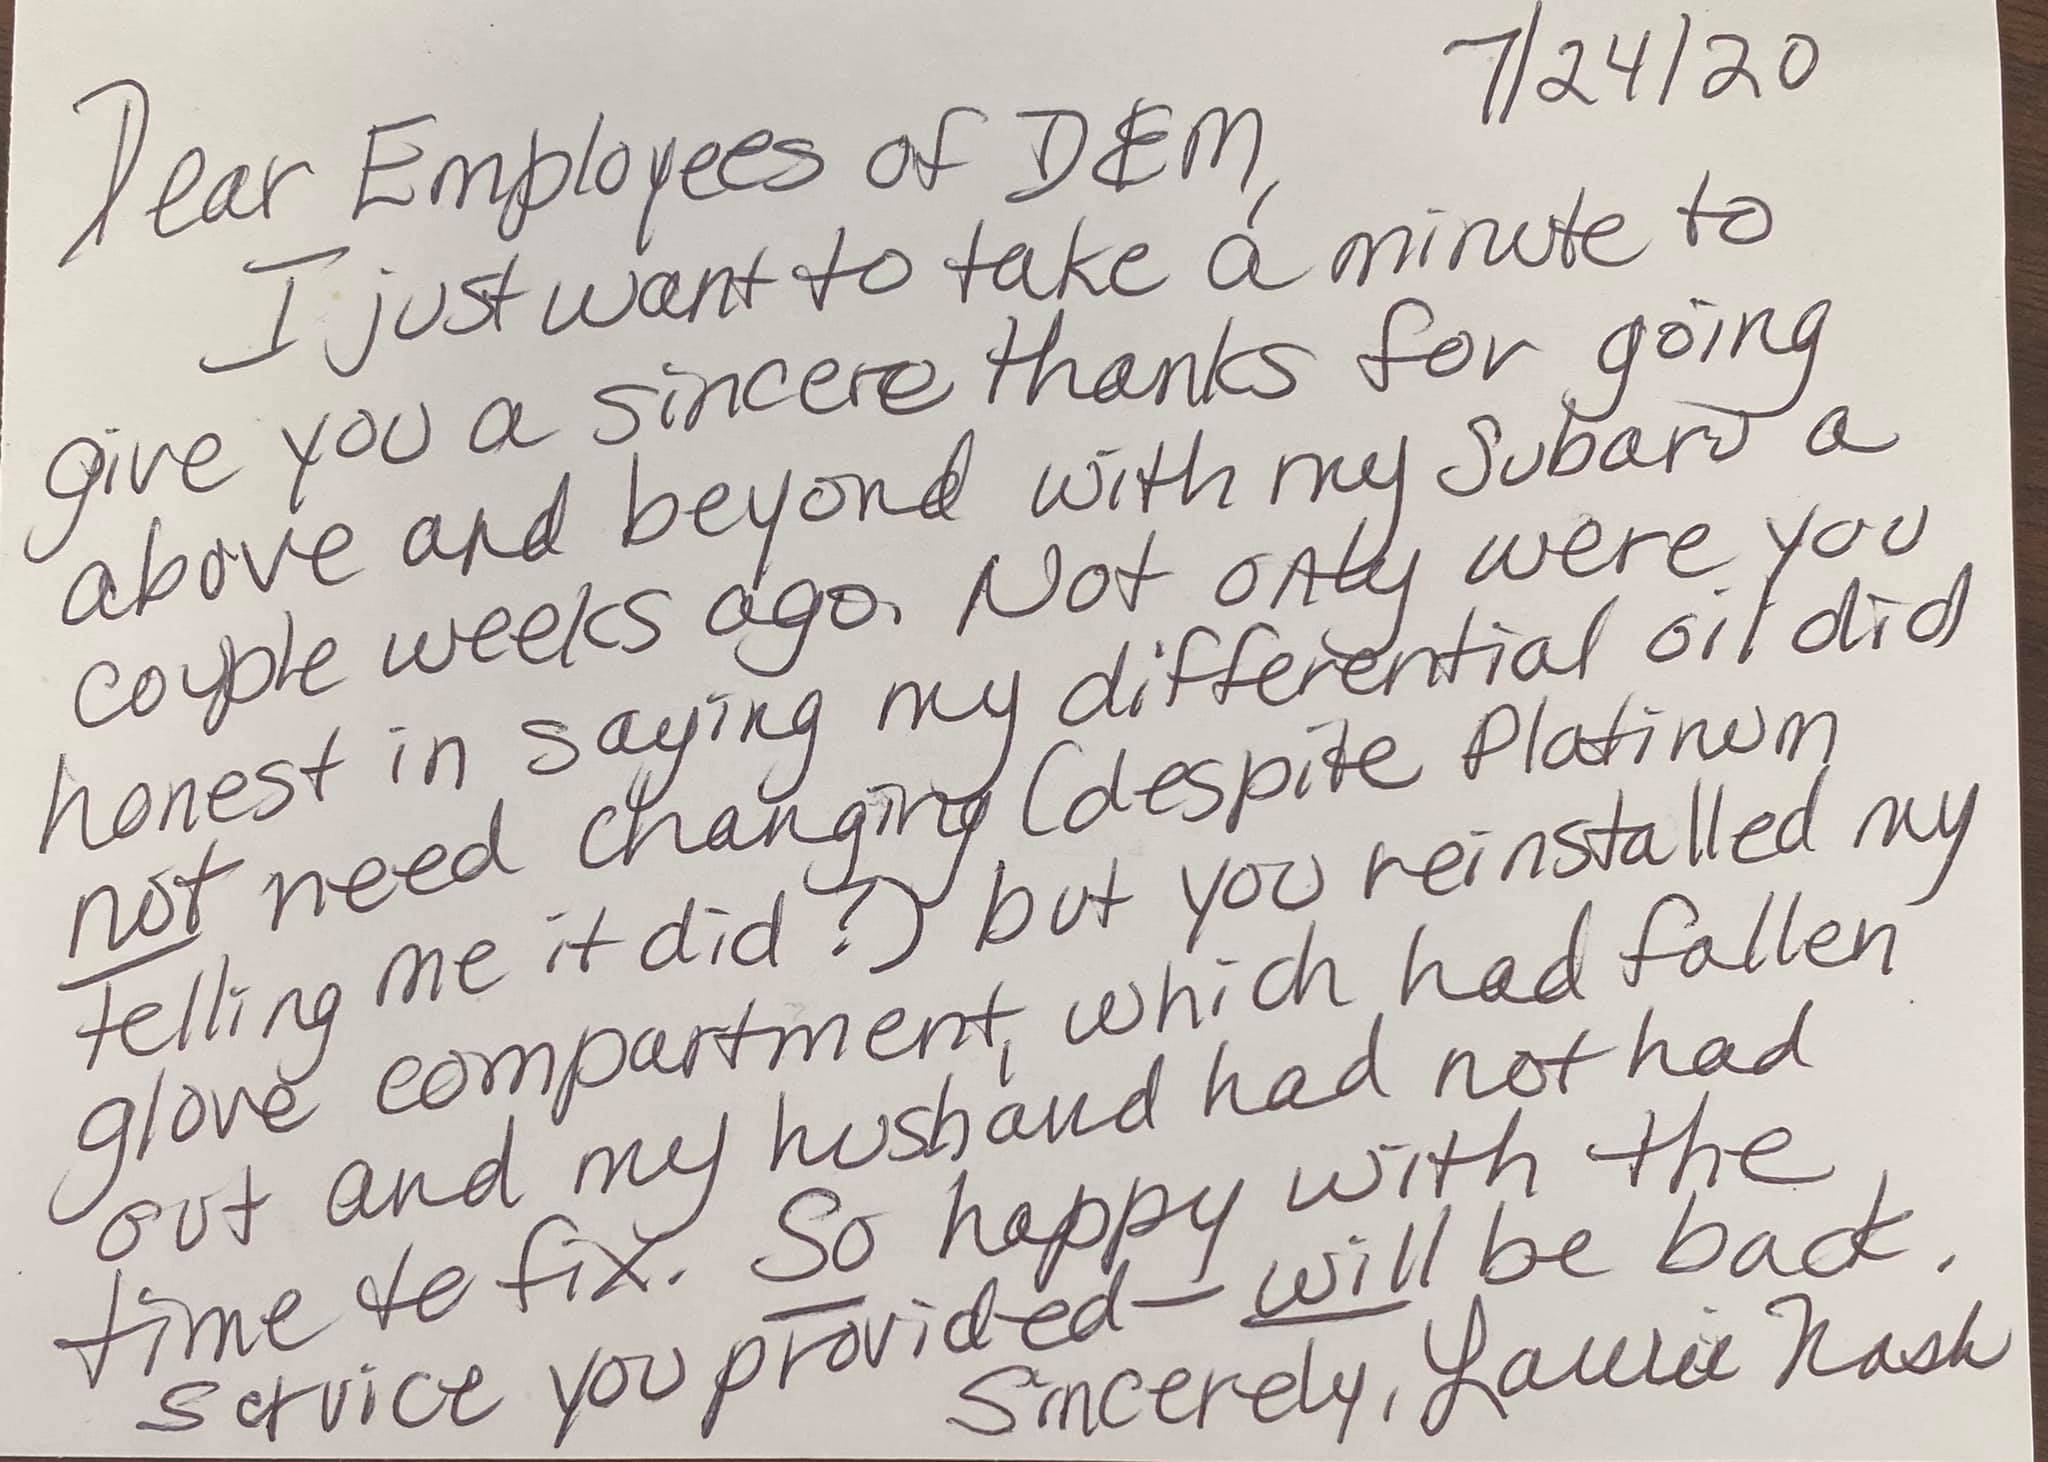 7/24/20
Dear Employees of D&M,
I just want to take a minute to
give you a sincere thanks for going
above and beyond with my Subaru a
couple weeks ago. Not only were you
honest in saying my differential oil did
not need changing (despite Platinum
telling me it did?) but you reinstalled my
glove compartment, which had fallen
out and my husband had not had
time to fix. So happy with the
service you provided - will be back.
Sincerely, Laurie Nash